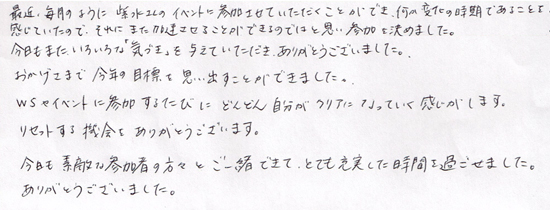 最近、毎月のように 紫水さんのイベントに参加させていただくことができ、何か変化の時期であることを
感じていたので、それにまた加速させることができるのではと思い参加を決めました。
今日もまた、いろいろな『気づき』を与えていただき、ありがとうございました。
おかげさまで 今年の目標を思い出すことができました。
WSやイベントに参加するたびに どんどん自分がクリアになっていく感じがします。
リセットする機会を ありがとうございます。
今日も 素敵な参加者の方々と ご一緒できて、とても充実した日時間を過ごせました。
ありがとうございました。